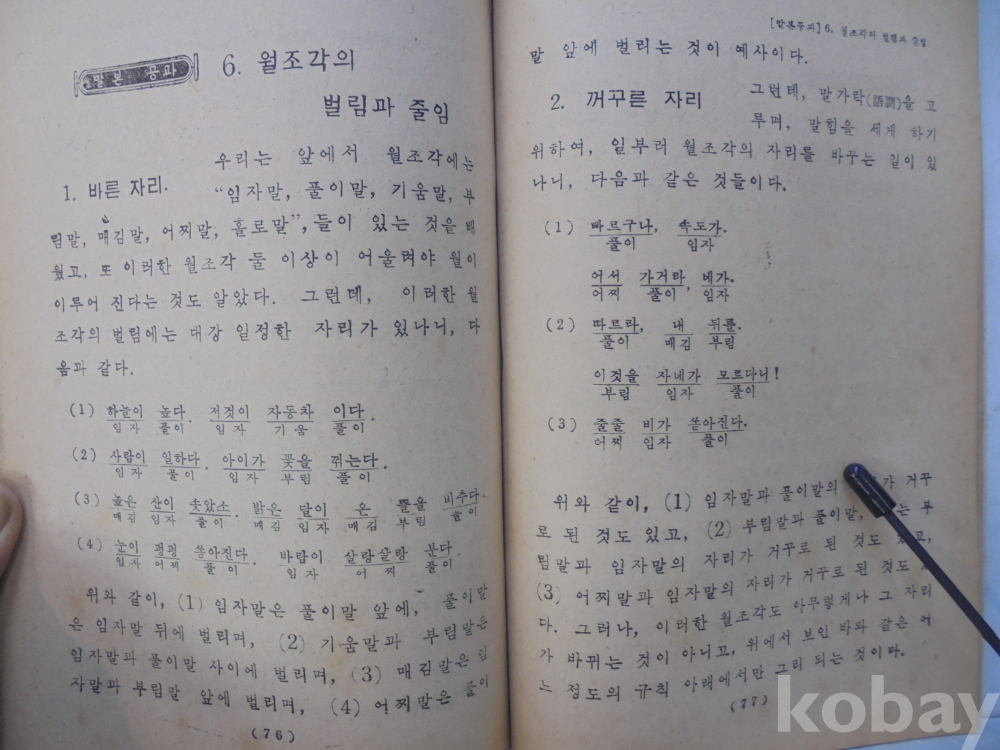 말본 공과
6. 월조각의
벌림과 줄임
1. 바른 자리.
우리는 앞에서 월조각에는
“임자말, 풀이말, 기움말, 부
림말, 매김말, 어찌말, 홀로말”, 들이 있는 것을 배
웠고, 또 이러한 월조각 둘 이상이 어울려야 월이
이루어 진다는 것도 알았다. 그런데, 이러한 월
조각의 벌림에는 대강 일정한 자리가 있나니, 다
음과 같다.
(1) 하늘이 높다. 저것이 자동차 이다.
임자 풀이 임자 기움 풀이
(2) 사람이 일하다. 아이가 꽃을 꺾는다.
임자 풀이 임자 부림 풀이
(3) 높은 산이 솟았소. 밝은 달이 온 뜰을 비추다.
매김 임자 풀이 매김 임자 매김 부림 풀이
(4) 눈이 펑펑 쏟아진다. 바람이 살랑살랑 분다.
임자 어찌 풀이 임자 어찌 풀이
위와 같이, (1) 임자말은 풀이말 앞에, 풀이말
은 임자말 뒤에 벌리며, (2) 기움말과 부림말은
임자말과 풀이말 사이에 벌리며, (3) 매김말은 임
자말과 부림말 앞에 벌리며, (4) 어찌말은 풀이
(76)
[말본공과] 6. 월조각의 벌림과 줄임
말 앞에 벌리는 것이 예사이다.
2. 꺼꾸른 자리
그런데, 말가락(語調)을 고
루며, 말힘을 세게 하기
위하여, 일부러 월조각의 자리를 바꾸는 길이 있
나니, 다음과 같은 것들이다.
(1) 빠르구나, 속도가.
풀이 임자
어서 가거라, 네가.
어찌 풀이 임자
(2) 따르라, 내 뒤를.
풀이 매김 부림
이것을 자네가 모르다니!
부림 임자 풀이
(3) 줄줄 비가 쏟아진다.
어찌 임자 풀이
위와 같이, (1) 임자말과 풀이말의 가 거꾸
로 된 것도 있고, (2) 부림말과 풀이말, 는 부
림말과 임자말의 자리가 거꾸로 된 것도 고,
(3) 어찌말과 임자말의 자리가 거꾸로 된 것도
다. 그러나, 이러한 월조각도 아무렇게나 그 자리
가 바뀌는 것이 아니고, 위에서 보인 바와 같은 어
느 정도의 규칙 아래에서만 그리 되는 것이다.
(77)
kobay